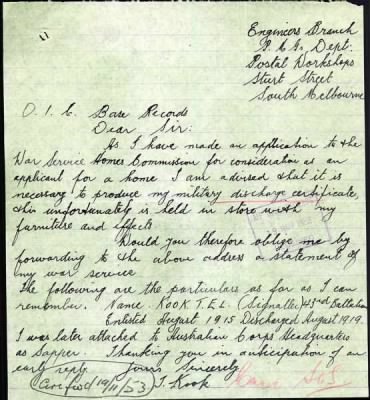 Engineers Branch
P.M.G. Dept.
Postal Workshops
Sturt Street
South Melbourne
O.I.C. Base Records
Dear Sir:
As I have made an application to the
War Service Homes Commission for consideration as an
applicant for a home I am advised that it is
necessary to produce my military discharge certificate,
this unfortunately is held in store with my
furniture and effects
Would you therefore oblige me by
forwarding to the above address a statement of
my war service
The following are the particulars as far as I can
remember. Name. KOOK T.E.L. (Signaller) 43rd Battalion
Enlisted August 1915 Discharged August 1919.
I was later attached to Australian Corps Headquarters
as Sapper. Thanking you in anticipation of an
early reply. Yours Sincerely
19/11/53) T. Kook